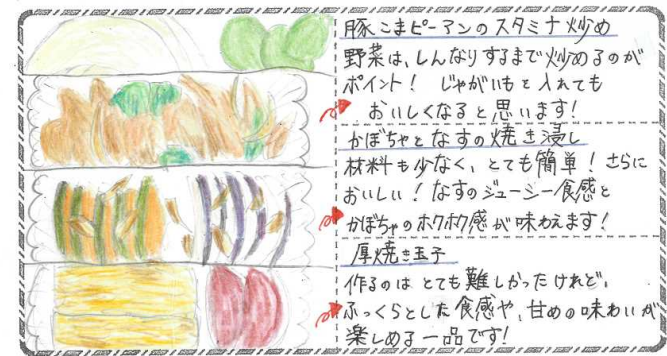 豚こまピーマンのスタミナ炒め
野菜は、しんなりするまで炒めるのが
ポイント! じゃがいもを入れても
おいしくなると思います!
かぼちゃとなすの焼き浸し
材料も少なく、とても簡単!さらに
おいしい!なすのジューシー食感と
かぼちゃのホクホク感が味わえます!
厚焼き玉子
作るのはとても難しかったけれど、
ふっくらとした食感や、甘めの味わいが
楽しめる一品です!